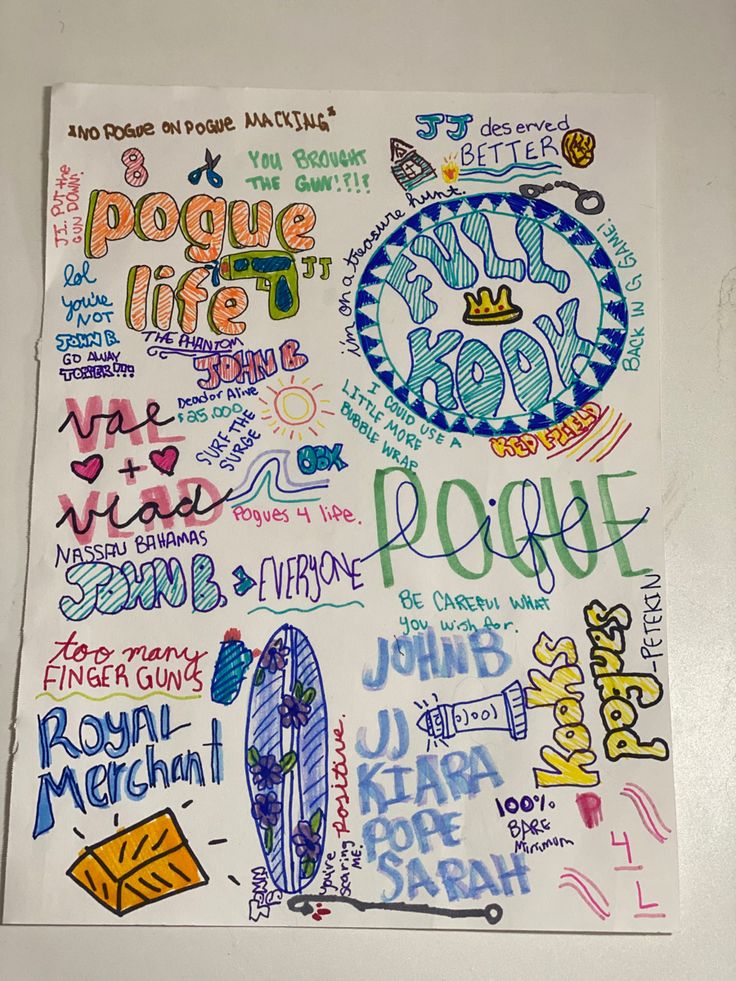 *NO POGUE ON POGUE MACKING*
JJ deserved
BETTER
JJ.. PUT the
GUN DOWN.
8
YOU BROUGHT
THE GUN!?!?
pogue
life
JJ
i'm on a treasure hunt.
FULL
KOOK
BACK IN G. GAME!
lol
you're
NOT
JOHN B.
GO AWAY
TOPPER!!!
THE PHANTOM
JOHN B
Dead or Alive
$25,000
SURF THE
SURGE
I COULD USE A
LITTLE MORE
BUBBLE WRAP
REDFIELD
VAL
Val
+
VLAD
Vlad
OBX
Pogues 4 life.
NASSAU BAHAMAS
JOHN B. > EVERYONE
POGUE
life
BE CAREFUL WHAT
you wish for.
too many
FINGER GUNS
Royal
Merchant
JOHN B
JJ
KIARA
POPE
SARAH
you're
scaring
ME.
Positive.
Kooks
pogues
-PETERKIN
100%
BARE
Minimum
P
4
L